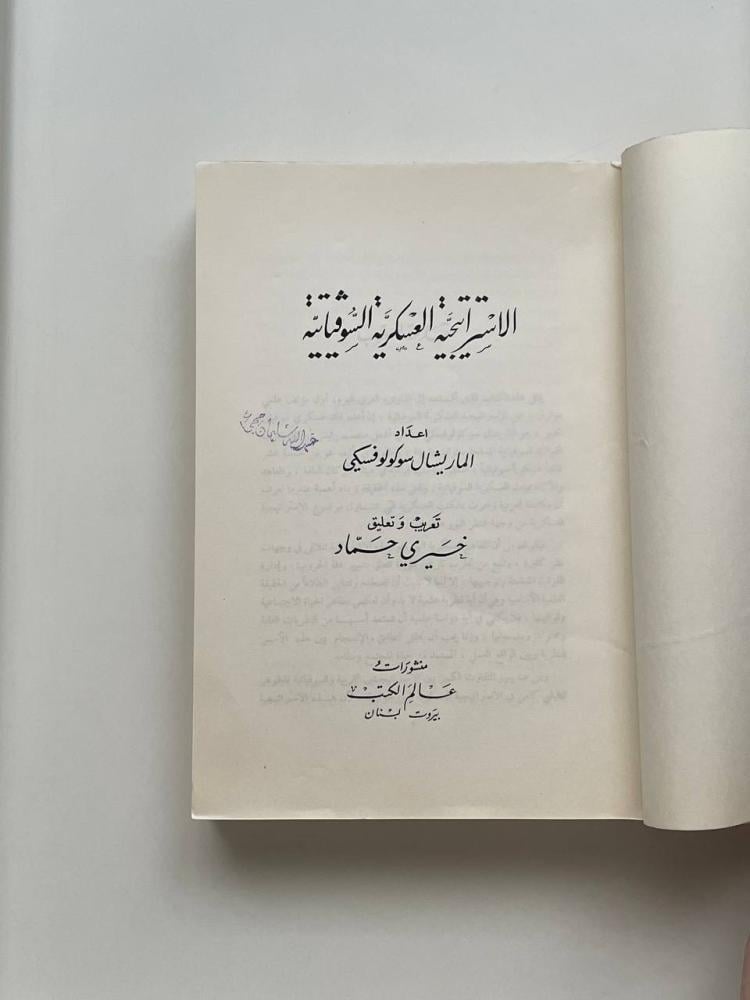 الاستراتيجية العسكرية السوفياتية
اعداد
الماريشال سوكولوفسكي
تعريب وتعليق
خيري حماد
منشورات
عالم الكتب
بيروت لبنان
عبد الله سليمان